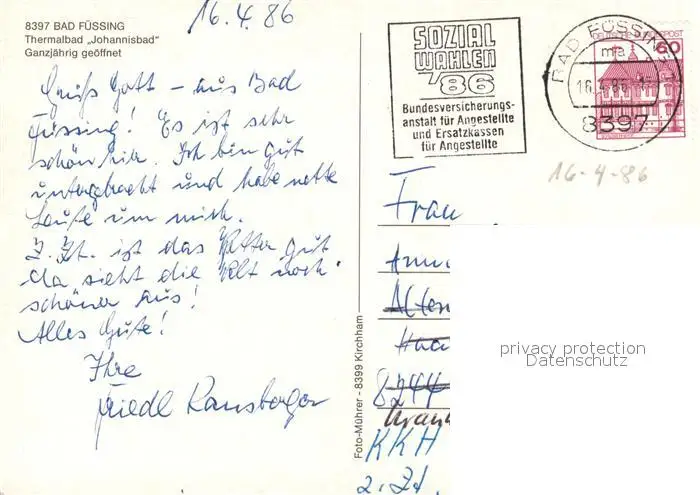 8397 BAD FÜSSING
Thermalbad „Johannisbad"
Ganzjährig geöffnet
16.4.86
Grüß Gott – aus Bad
Füssing! Es ist sehr
schön hier. Ich bin gut
untergebracht und habe nette
Leute um mich.
Z. Zt. ist das Wetter gut
da sieht die Welt noch
schöner aus!
Alles Gute!
Ihre
Friedl Ransberger
Foto-Mührer - 8399 Kirchham
SOZIAL
WAHLEN
'86
Bundesversicherungs-
anstalt für Angestellte
und Ersatzkassen
für Angestellte
BAD FÜSSING
mа
16.4.86
8397
DEUTSCHE BUNDESPOST
60
16-4-86
Frau
Alten
8244
KKH
z. Zt.
privacy protection
Datenschutz